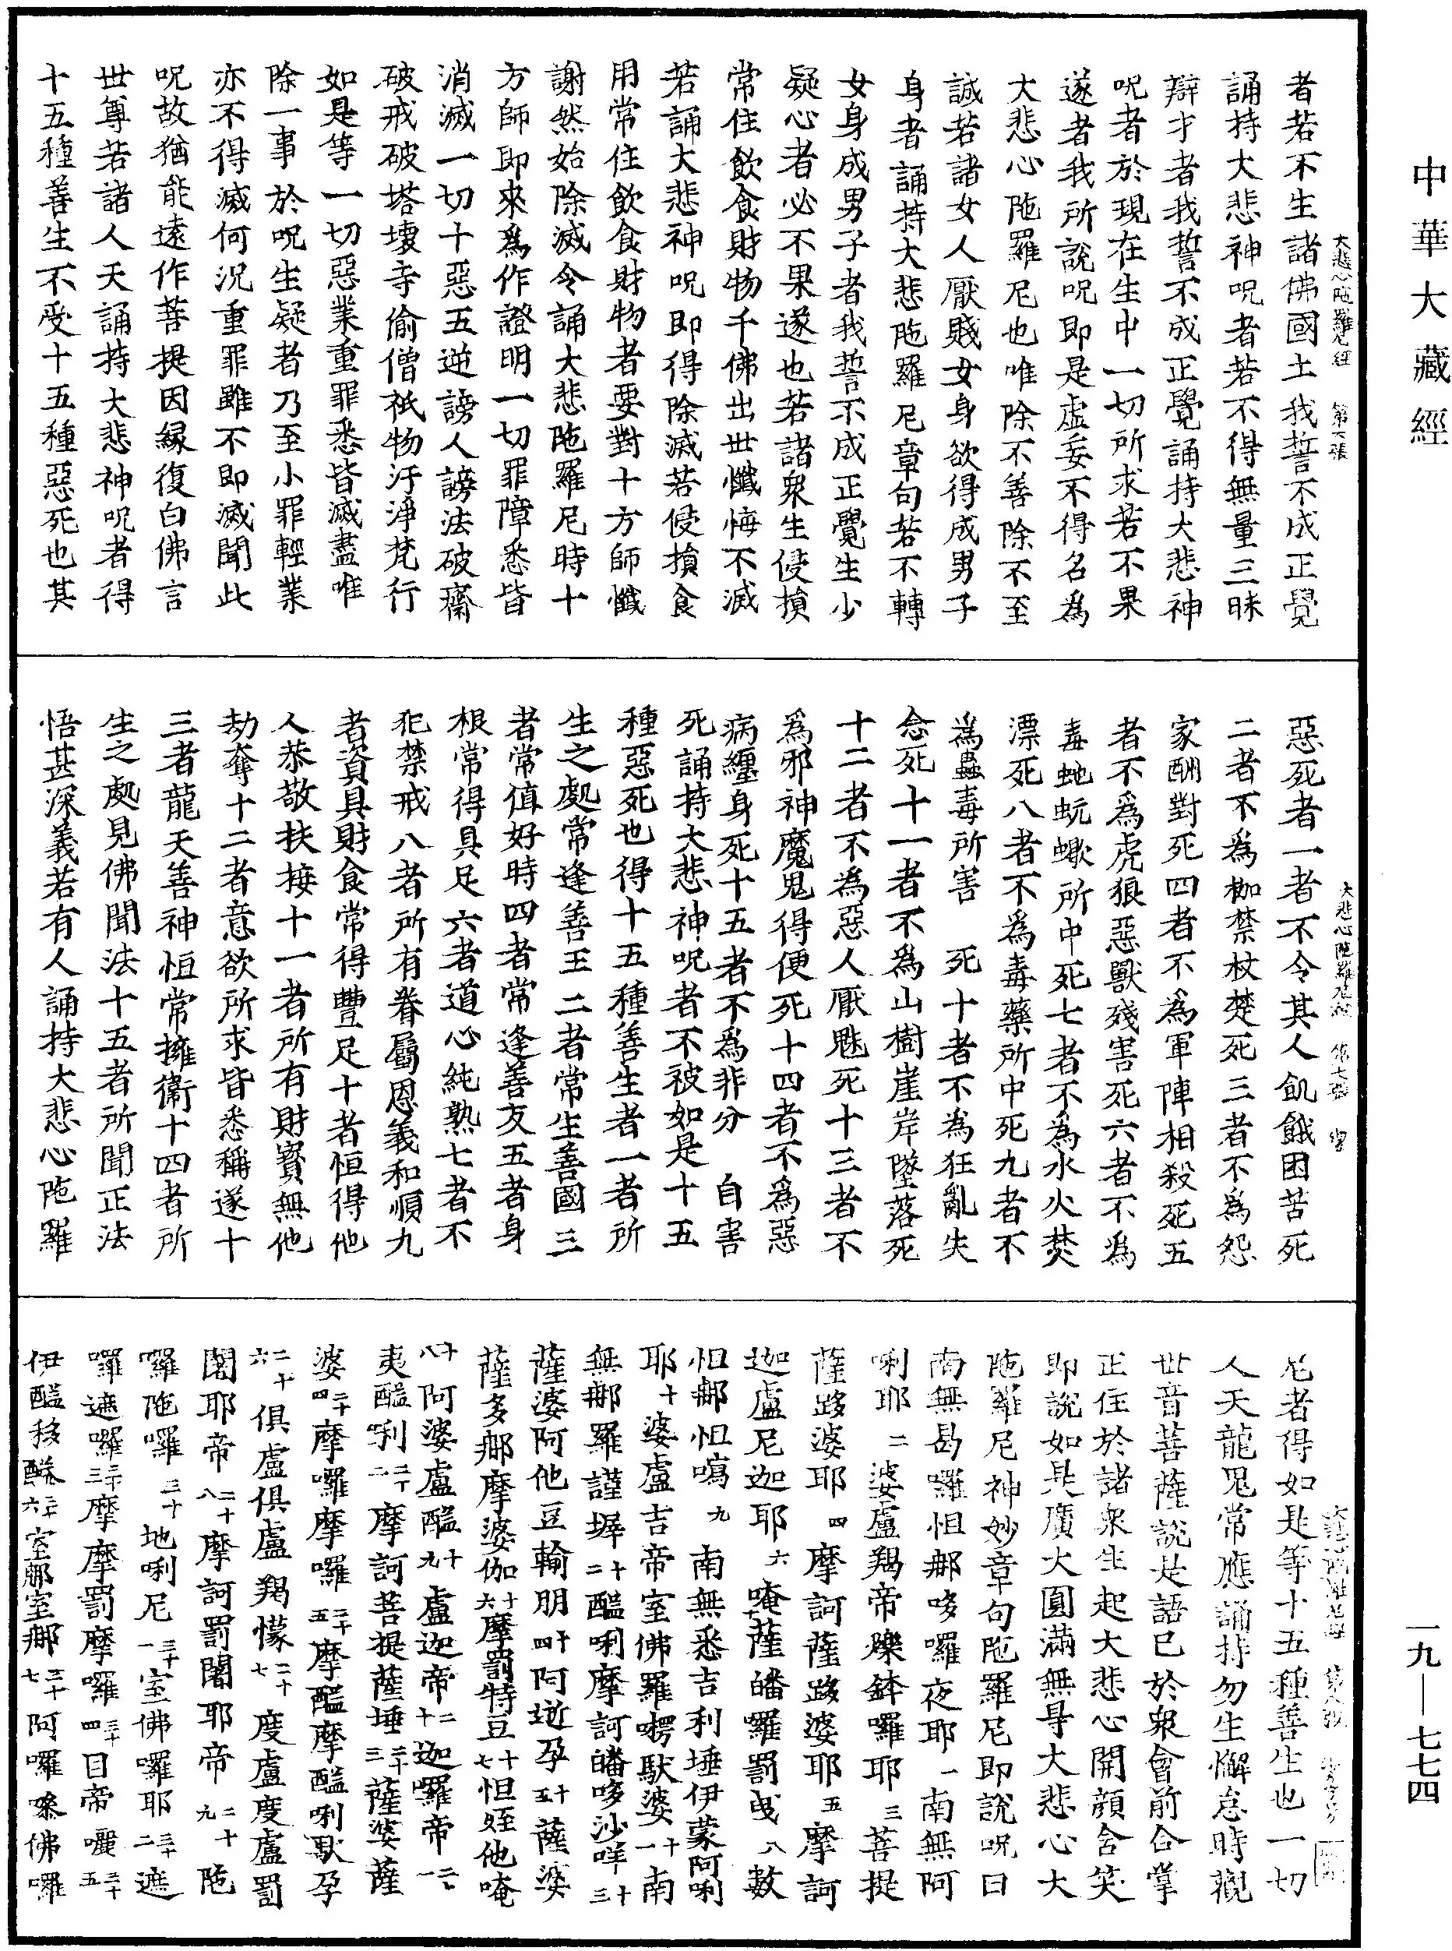 中華大藏經
者若不生諸佛國土我誓不成正覺
誦持大悲神呪者若不得無量三昧
辯才者我誓不成正覺誦持大悲神
呪者於現在生中一切所求若不果
遂者我所說呪即是虛妄不得名為
大悲心陁羅尼也唯除不善除不至
誠若諸女人厭賤女身欲得成男子
身者誦持大悲陁羅尼章句若不轉
女身成男子者我誓不成正覺生少
疑心者必不果遂也若諸衆生侵損
常住飲食財物千佛出世懺悔不滅
若誦大悲神呪即得除滅若侵損食
用常住飲食財物者要對十方師懺
謝然始除滅令誦大悲陁羅尼時十
方師即來爲作證明一切罪障悉皆
消滅一切十惡五逆謗人謗法破齋
破戒破塔壞寺偷僧祇物汙淨梵行
如是等一切惡業重罪悉皆滅盡唯
除一事於呪生疑者乃至小罪輕業
亦不得滅何況重罪雖不即滅聞此
呪故猶能遠作菩提因緣復白佛言
世尊若諸人天誦持大悲神呪者得
十五種善生不受十五種惡死也其
大悲心陁羅尼經 第六張
惡死者一者不令其人飢餓困苦死
二者不為枷禁杖楚死三者不為怨
家酬對死四者不為軍陣相殺死五
者不為虎狼惡獸殘害死六者不為
毒虵蚖蠍所中死七者不為水火焚
漂死八者不為毒藥所中死九者不
為蟲毒所害 死十者不為狂亂失
念死十一者不為山樹崖岸墜落死
十二者不為惡人厭魅死十三者不
為邪神魔鬼得便死十四者不為惡
病纏身死十五者不為非分 自害
死誦持大悲神呪者不被如是十五
種惡死也得十五種善生者一者所
生之處常逢善王二者常生善國三
者常值好時四者常逢善友五者身
根常得具足六者道心純熟七者不
犯禁戒八者所有眷屬恩義和順九
者資具財食常得豐足十者恒得他
人恭敬扶接十一者所有財寶無他
劫奪十二者意欲所求皆悉稱遂十
三者龍天善神恒常擁衛十四者所
生之處見佛聞法十五者所聞正法
悟甚深義若有人誦持大悲心陁羅
大悲心陁羅尼經 第七張
尼者得如是等十五種善生也一切
人天龍鬼常應誦持勿生懈怠時觀
世音菩薩說是語已於衆會前合掌
正住於諸衆生起大悲心開顏含笑
即說如是廣大圓滿無㝵大悲心大
陁羅尼神妙章句陁羅尼即說呪曰
南無曷囉怛郍哆囉夜耶一南無阿
唎耶二婆盧羯帝爍鉢囉耶三菩提
薩跢婆耶四摩訶薩跢婆耶五摩訶
迦盧尼迦耶六唵薩皤羅罰曳八數
怛郍怛寫九南無悉吉利埵伊蒙阿唎
耶十婆盧吉帝室佛羅㘄馱婆十一南
無郍羅謹墀十二醯唎摩訶皤哆沙咩十三
薩婆阿他豆輸朋十四阿逝孕十五薩婆
薩多郍摩婆伽十六摩罰特豆十七怛姪他唵
十八阿婆盧醯十九盧迦帝二十迦羅帝二十一
夷醯唎二十二摩訶菩提薩埵二十三薩婆薩
婆二十四摩囉摩囉二十五摩醯摩醯唎馱孕
二十六俱盧俱盧羯懞二十七度盧度盧罰
闍耶帝二十八摩訶罰闍耶帝二十九陁
羅陁囉三十地唎尼三十一室佛囉耶三十二遮
囉遮囉三十三摩摩罰摩囉三十四目帝囇三十五
伊醯移醯三十六室郍室郍三十七阿囉嘇佛囉
一九—七七四